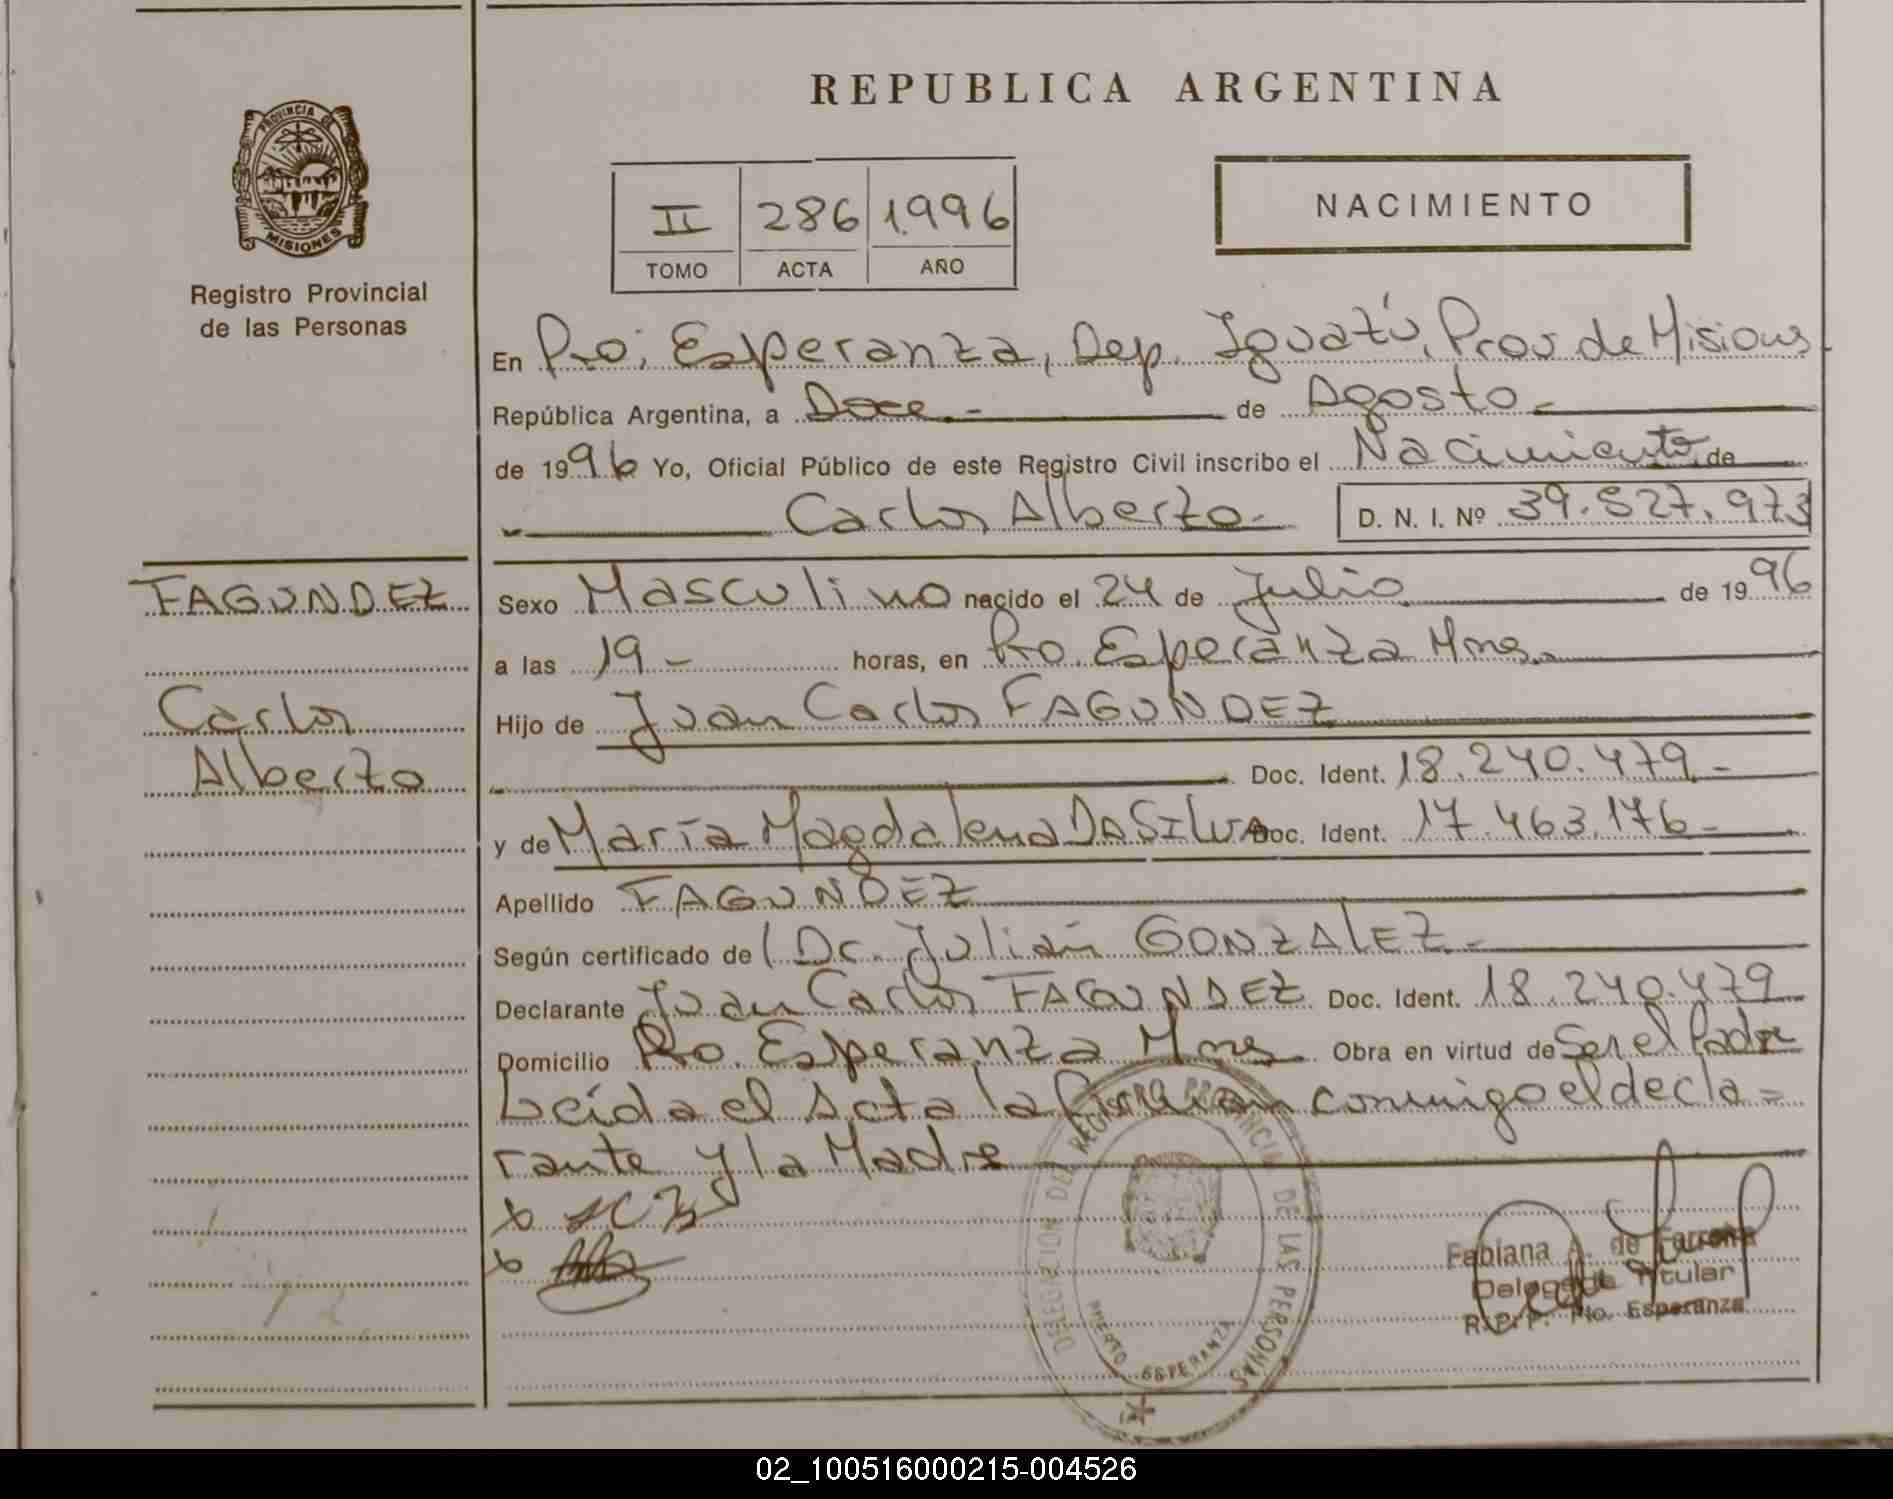 REPUBLICA ARGENTINA
PROVINCIA DE
MISIONES
Registro Provincial
de las Personas
II 286 1.996
TOMO ACTA AÑO
NACIMIENTO
En Pto. Esperanza, Dep. Iguazú, Prov de Misiones.
República Argentina, a Doce.- de Agosto.-
de 1996 Yo, Oficial Público de este Registro Civil inscribo el Nacimiento de
Carlos Alberto.- D. N. I. Nº 39.527.973
FAGUNDEZ
Carlos
Alberto
Sexo Masculino nacido el 24 de Julio de 1996
a las 19 - horas, en Pto. Esperanza Mnes.
Hijo de Juan Carlos FAGUNDEZ
Doc. Ident. 18.240.479.-
y de María Magdalena DA SILVA Doc. Ident. 17.463.176.-
Apellido FAGUNDEZ
Según certificado de l Dr. Julián GONZALEZ.-
Declarante Juan Carlos FAGUNDEZ Doc. Ident. 18.240.479
Domicilio Pto. Esperanza Mnes. Obra en virtud de Ser el Padre
Leída el Acta la firman conmigo el decla=
rante y la Madre
DELEGACION DEL REGISTRO PROVINCIAL DE LAS PERSONAS
PUERTO ESPERANZA
Fabiana A. de Ferreira
Delegada Titular
R.P.P. Pto. Esperanza
02_100516000215-004526